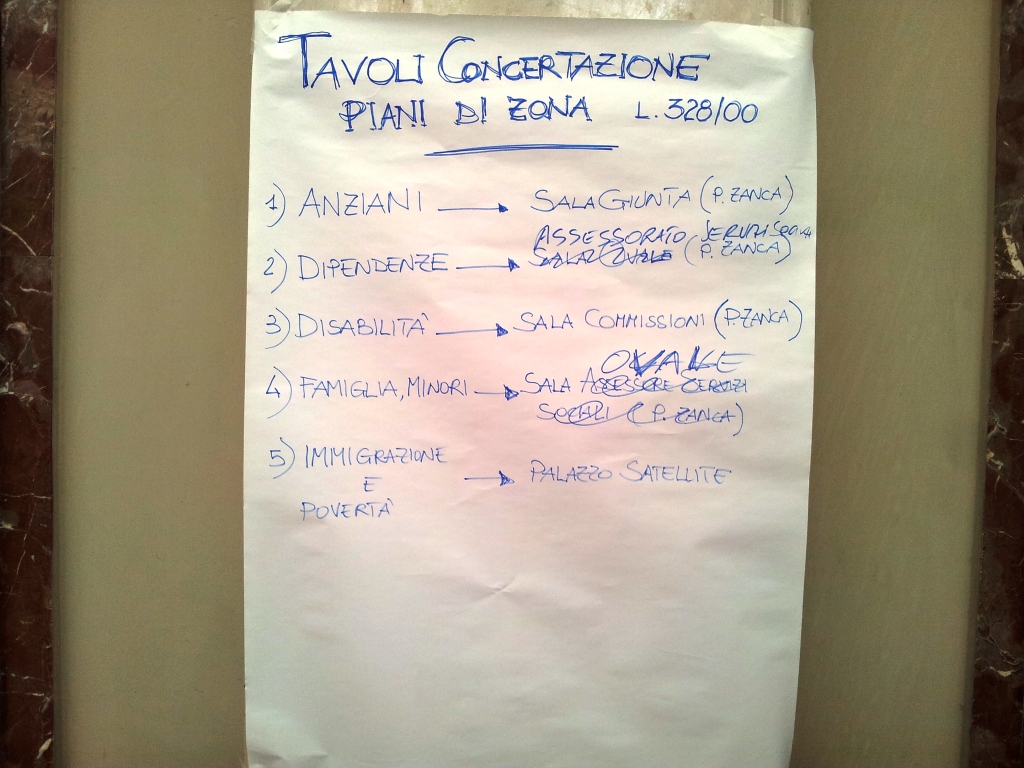 TAVOLI CONCERTAZIONE
PIANI DI ZONA L. 328/00
1) ANZIANI → SALA GIUNTA (P. ZANCA)
ASSESSORATO SERVIZI SOCIALI
2) DIPENDENZE → SALA OVALE (P. ZANCA)
3) DISABILITÀ → SALA COMMISSIONI (P. ZANCA)
OVALE
4) FAMIGLIA, MINORI → SALA ASSESSORE SERVIZI
SOCIALI (P. ZANCA)
5) IMMIGRAZIONE
E → PALAZZO SATELLITE
POVERTÀ